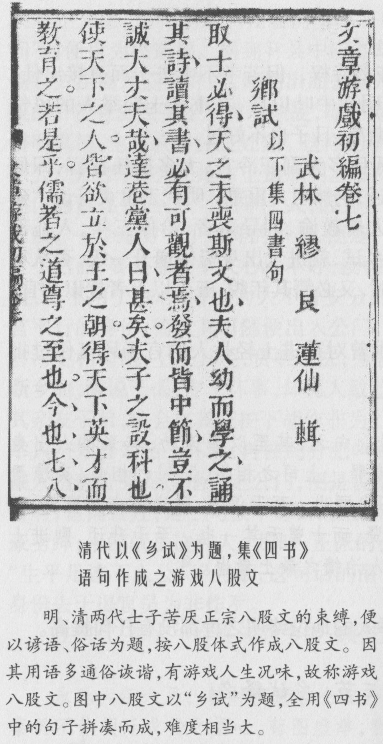 文章游戲初編卷七
武林 繆艮 蓮仙 輯
鄉試以下集四書句
取士必得天之未喪斯文也夫幼而學之誦
其詩讀其書必有可觀者焉發而皆中節豈不
誠大丈夫哉達巷黨人曰甚矣夫子之設科也
使天下之人皆欲立於王之朝得天下英才而
教育之若是乎儒者之道尊之至也今也七八
清代以《乡试》为题,集《四书》
语句作成之游戏八股文
明、清两代士子苦厌正宗八股文的束缚,便
以谚语、俗话为题,按八股体式作成八股文。因
其用语多通俗诙谐,有游戏人生况味,故称游戏
八股文。图中八股文以“乡试”为题,全用《四书》
中的句子拼凑而成,难度相当大。